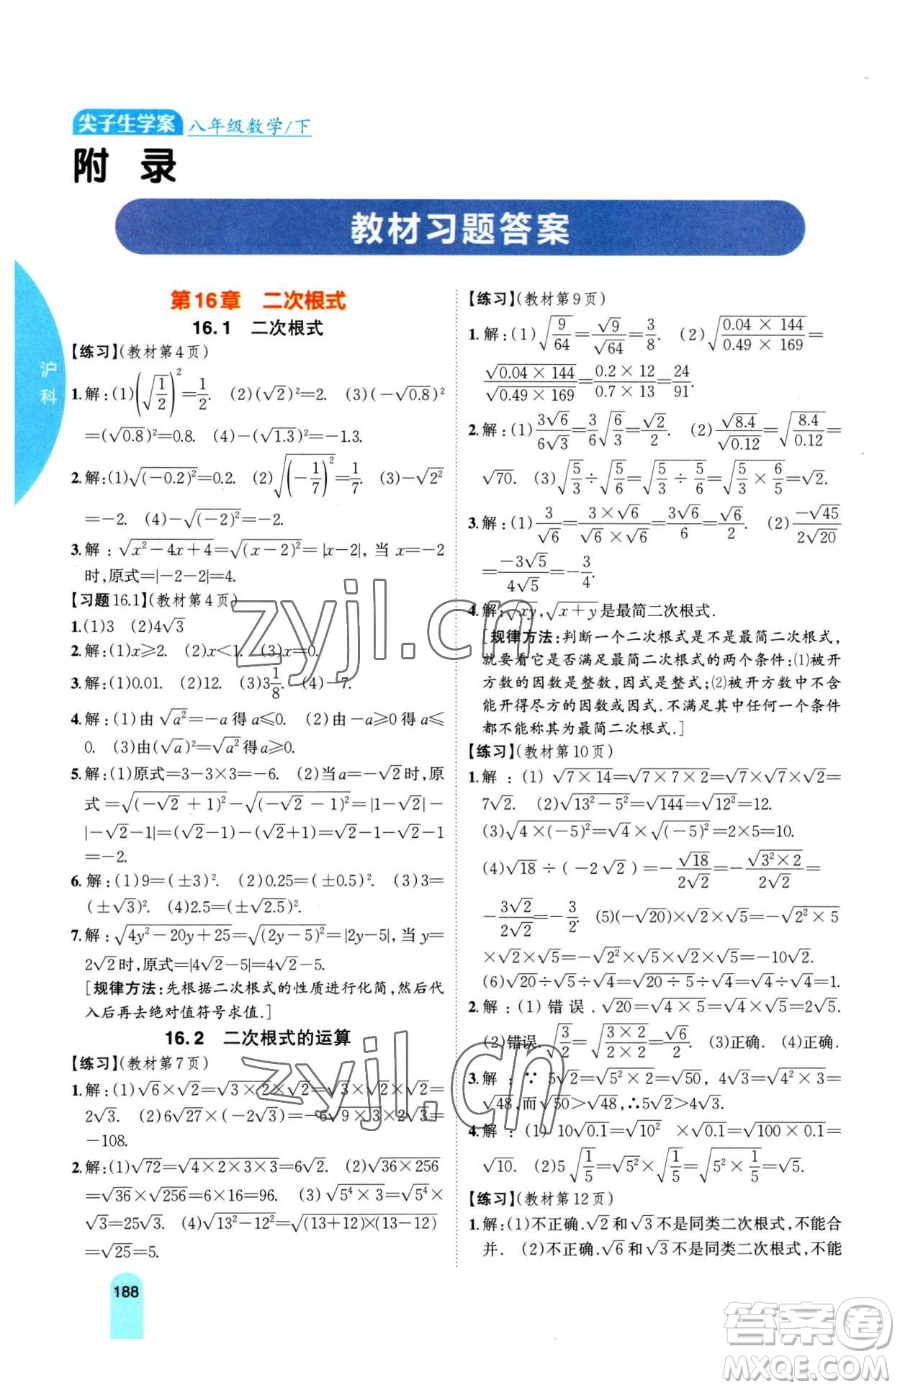 尖子生学案 八年级数学/下
附 录
教材习题答案
沪科
第16章 二次根式
16.1 二次根式
【练习】(教材第4页)
1.解:(1)(√(1/2))²=1/2. (2)(√2)²=2. (3)(-√0.8)²
=(√0.8)²=0.8. (4)-(√1.3)²=-1.3.
2.解:(1)√(-0.2)²=0.2. (2)√(-1/7)²=1/7. (3)-√2²
=-2. (4)-√(-2)²=-2.
3.解:√(x²-4x+4)=√(x-2)²=|x-2|,当 x=-2
时,原式=|-2-2|=4.
【习题16.1】(教材第4页)
1.(1)3 (2)4√3
2.解:(1)x≥2. (2)x<1. (3)x=0.
3.解:(1)0.01. (2)12. (3)3 1/8. (4)-7.
4.解:(1)由√a²=-a得a≤0. (2)由√a²=-a得a≤
0. (3)由(√a)²=a得a≥0.
5.解:(1)原式=3-3×3=-6. (2)当a=-√2时,原
式=√(-√2+1)²-√(-√2-1)²=|1-√2|-
|-√2-1|=(√2-1)-(√2+1)=√2-1-√2-1
=-2.
6.解:(1)9=(±3)². (2)0.25=(±0.5)². (3)3=
(±√3)². (4)2.5=(±√2.5)².
7.解:√(4y²-20y+25)=√(2y-5)²=|2y-5|,当y=
2√2时,原式=|4√2-5|=4√2-5.
[规律方法:先根据二次根式的性质进行化简,然后代
入后再去绝对值符号求值.]
16.2 二次根式的运算
【练习】(教材第7页)
1.解:(1)√6×√2=√3×√2×√2=
2√3. (2)6√27×(-2√3)=-6√9×√3×2√3=
-108.
2.解:(1)√72=√(4×2×3×3)=6√2. (2)√(36×256)
=√36×√256=6×16=96. (3)√(5⁴×3)=√5⁴×
√3=25√3. (4)√(13²-12²)=√((13+12)×(13-12))
=√25=5.
【练习】(教材第9页)
1.解:(1)√(9/64)=√9/√64=3/8. (2)√((0.04×144)/(0.49×169))=
√(0.04×144)/√(0.49×169)=(0.2×12)/(0.7×13)=24/91.
2.解:(1)3√6/6√3=3/6√(6/3)=√2/2. (2)√8.4/√0.12=√(8.4/0.12)=
√70. (3)√(5/3)÷√(5/6)=√(5/3÷5/6)=√(5/3×6/5)=√2.
3.解:(1)3/√6=(3×√6)/(√6×√6)=3√6/6=√6/2. (2)-√45/2√20
=-3√5/4√5=-3/4.
4.解:√xy,√(x+y)是最简二次根式.
[规律方法:判断一个二次根式是不是最简二次根式,
就要看它是否满足最简二次根式的两个条件:(1)被开
方数的因数是整数,因式是整式;(2)被开方数中不含能
开得尽方的因数或因式.只要不满足其中任何一个条件
都不能称其为最简二次根式.]
【练习】(教材第10页)
1.解:(1)√(7×14)=√(7×7×2)=√7²×√2=
7√2. (2)√(13²-5²)=√144=√12²=12.
(3)√(4×(-5)²)=√4×√(-5)²=2×5=10.
(4)√18÷(-2√2)=-√18/2√2=-√(3²×2)/2√2=
-3√2/2√2=-3/2. (5)(-√20)×√2×√5=-√(2²×5)
×√2×√5=-2√5×√2×√5=-10√2.
(6)√20÷√5÷√4=√(20÷5)÷√4=√4÷√4=1.
2.解:(1)错误.√20=√(4×5)=√4×√5=2√5.
(2)错误.√(3/2)=√((3×2)/(2×2))=√6/2. (3)正确. (4)正确.
3.解:∵5√2=√(5²×2)=√50,4√3=√(4²×3)=
√48,而√50>√48,∴5√2>4√3.
4.解:(1)10√0.1=√10²×√0.1=√(100×0.1)=
√10. (2)5√(1/5)=√5²×√(1/5)=√(5²×1/5)=√5.
【练习】(教材第12页)
1.解:(1)不正确.√2和√3不是同类二次根式,不能合
并. (2)不正确.√6和√3不是同类二次根式,不能
188
zyjl.cn
zyjl.cn
答案圈
MXQE.COM